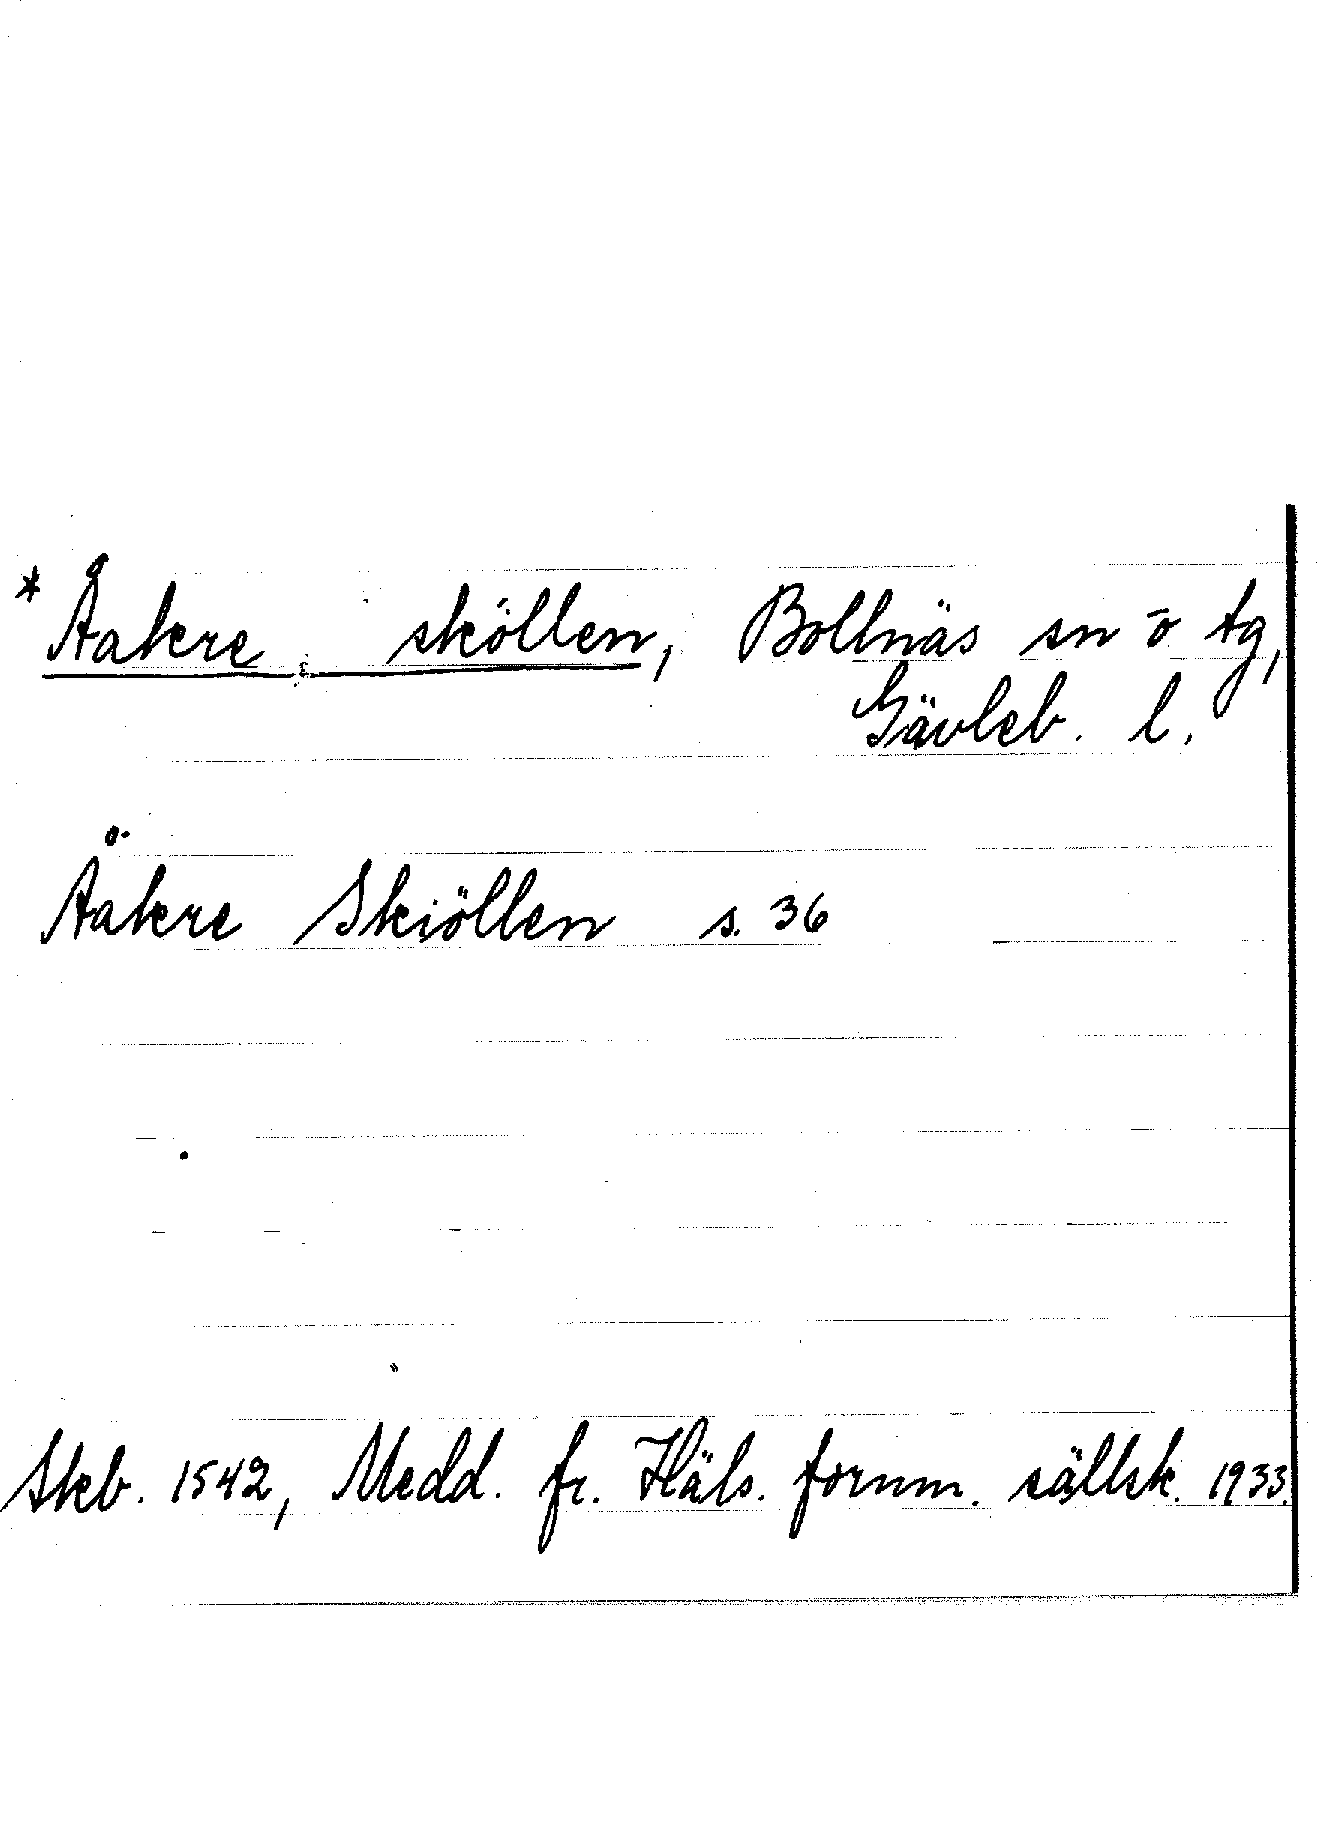 * Åakre sköllen, Bollnäs sn o tg,
Gävleb. l.
Åakre Skiöllen s. 36
Skb. 1542, Medd. fr. Häls. fornm. sällsk. 1933.